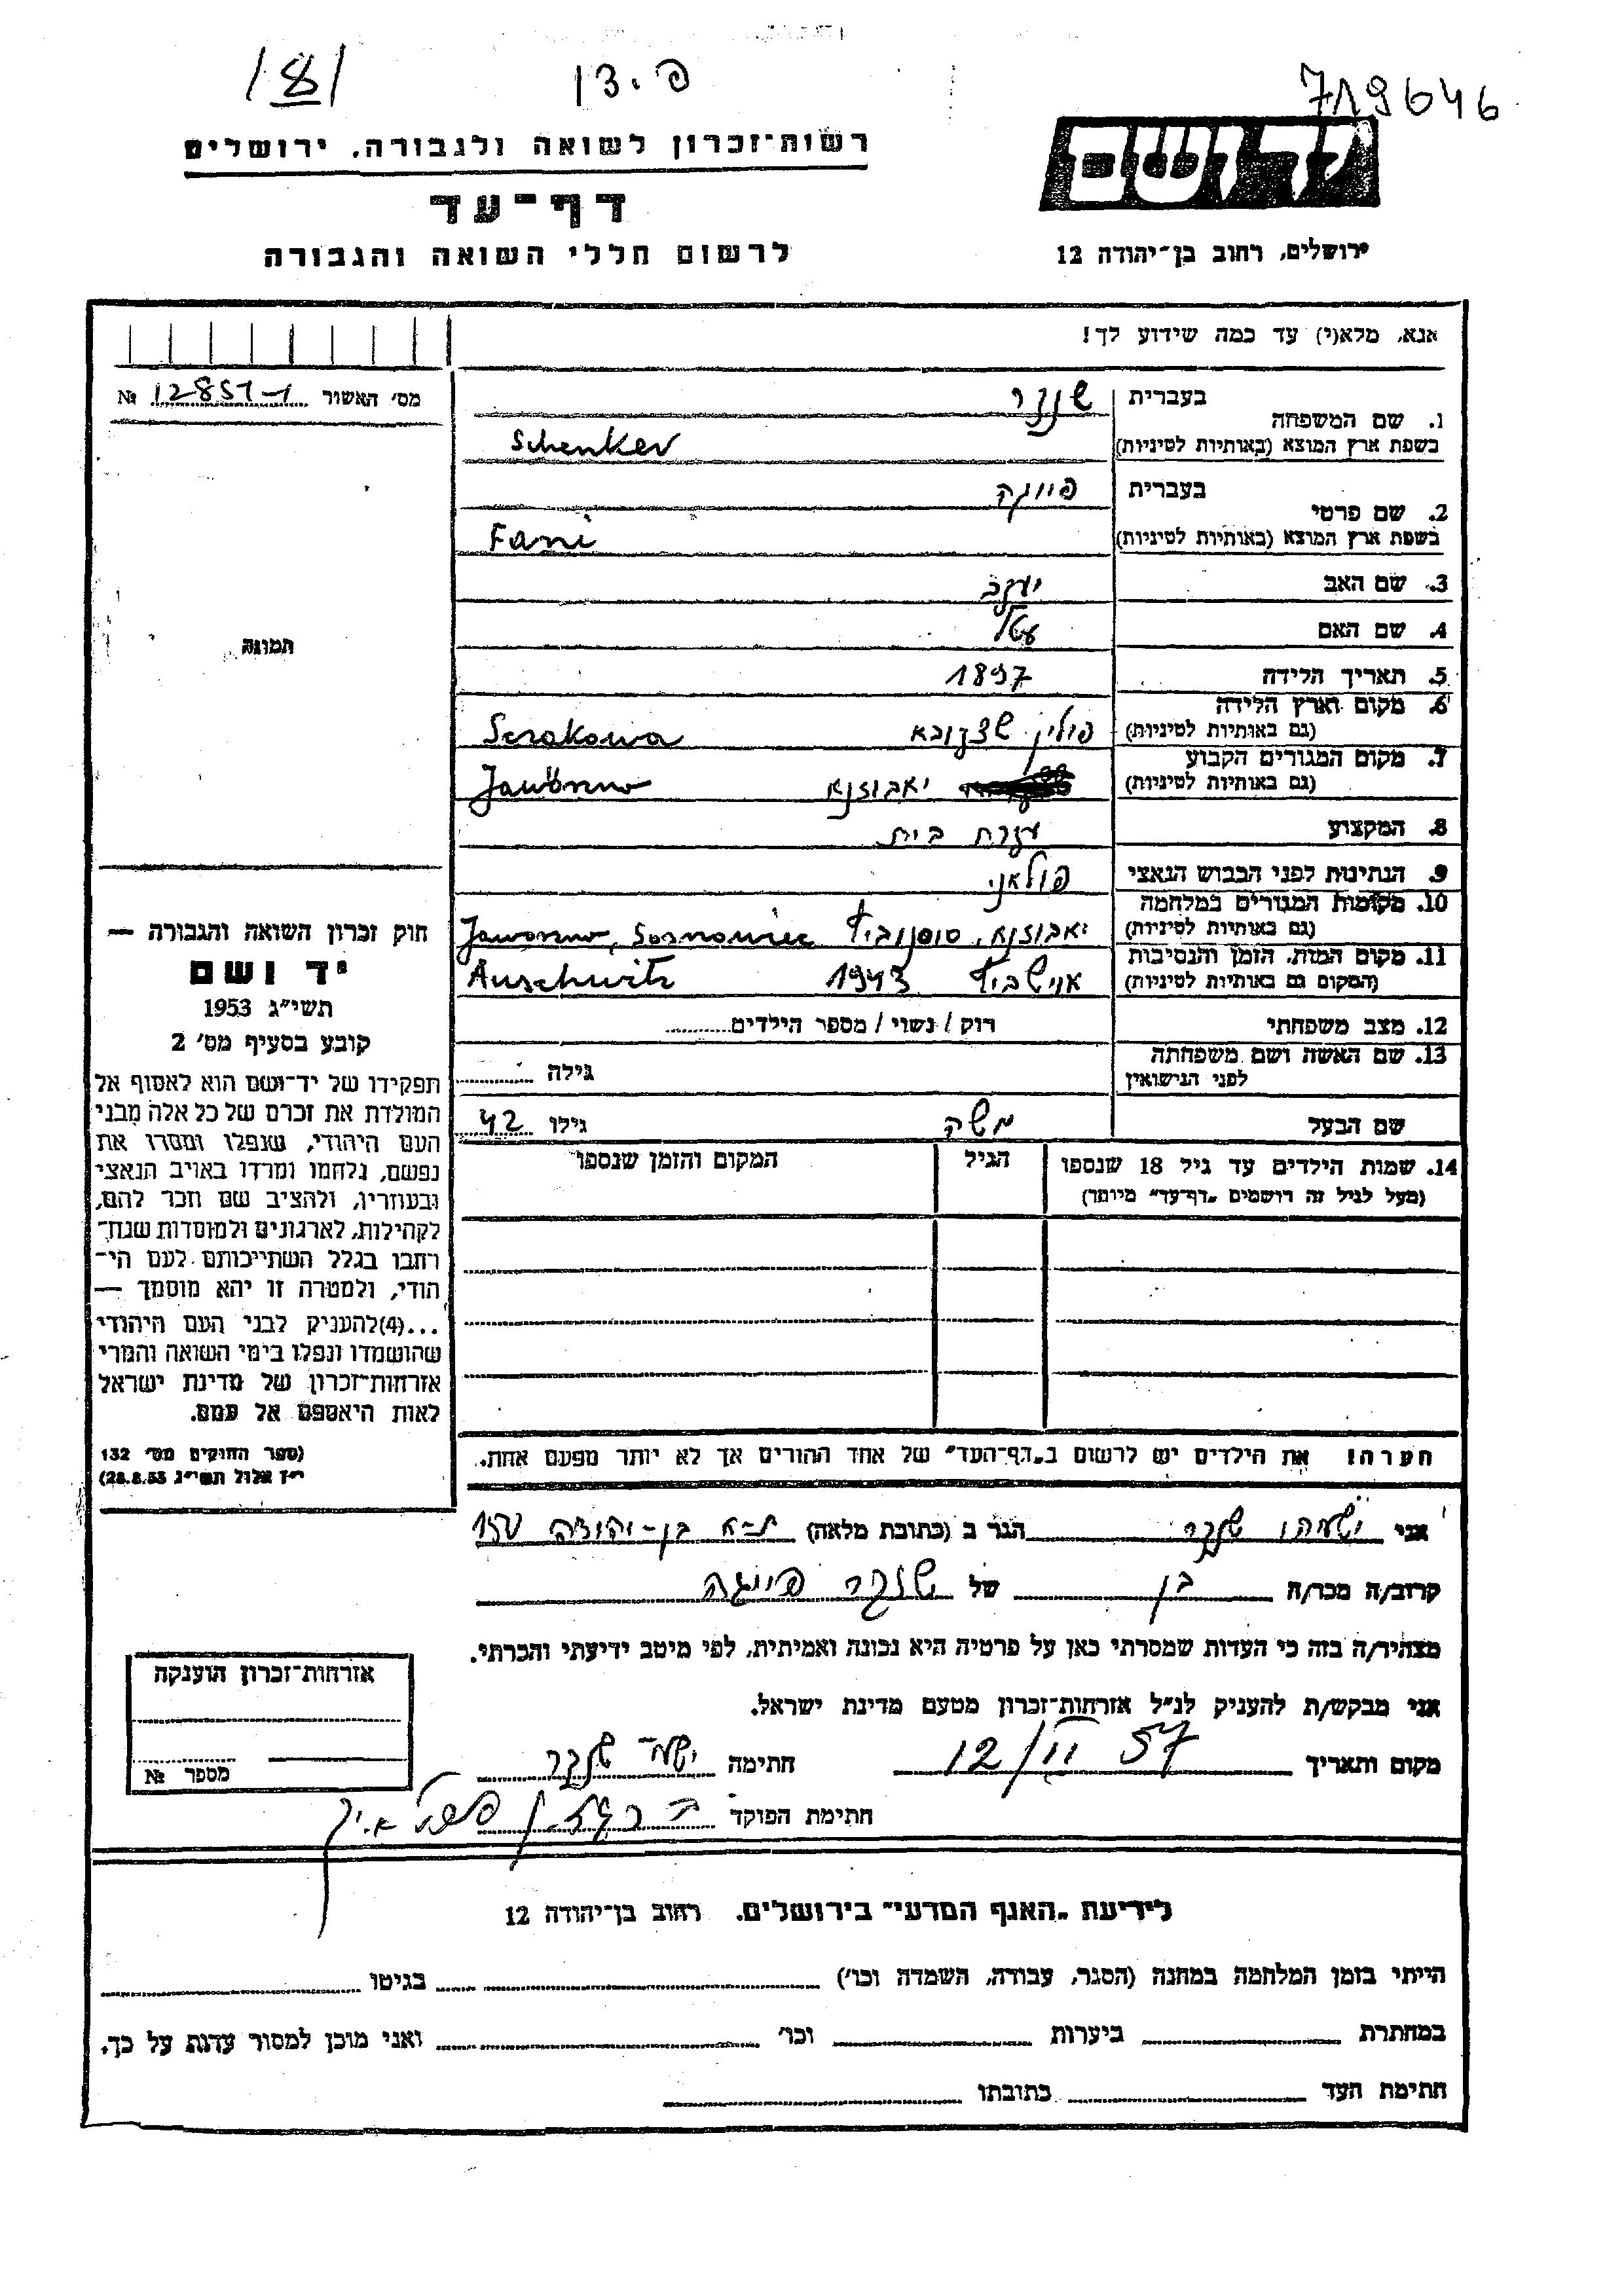 /8/
פ. צן
719646
רשות־זכרון לשואה ולגבורה, ירושלים
יד ושם
דף־עד
לרשום חללי השואה והגבורה
ירושלים, רחוב בן־יהודה 12
אנא, מלא(י) עד כמה שידוע לך!
מס׳ האשור 12851-1 №
1. שם המשפחה
בעברית שנקר
בשפת ארץ המוצא (באותיות לטיניות) Schenker
2. שם פרטי
בעברית פייגה
בשפת ארץ המוצא (באותיות לטיניות) Fani
3. שם האב יעקב
4. שם האם עטל
5. תאריך הלידה 1897
6. מקום וארץ הלידה
(גם באותיות לטיניות) פולין שצקובא Sczakowa
7. מקום המגורים הקבוע
(גם באותיות לטיניות) יאבוזנא Jawórzno
8. המקצוע עקרת בית
9. הנתינות לפני הכבוש הנאצי פולאני
10. מקומות המגורים במלחמה
(גם באותיות לטיניות) יאבוזנא, סוסנוביץ Jaworzno, Sosnowiec
11. מקום המות, הזמן והנסיבות
(המקום גם באותיות לטיניות) אושביץ 1943 Auschwitz
12. מצב משפחתי רוק / נשוי / מספר הילדים
13. שם האשה ושם משפחתה
לפני הנישואין גילה
שם הבעל משה גילו 42
14. שמות הילדים עד גיל 18 שנספו
(מעל לגיל זה רושמים „דף־עד״ מיוחד)
הגיל
המקום והזמן שנספו
תמונה
חוק זכרון השואה והגבורה —
יד ושם
תשי״ג 1953
קובע בסעיף מס׳ 2
תפקידו של יד־ושם הוא לאסוף אל
המולדת את זכרם של כל אלה מבני
העם היהודי, שנפלו ומסרו את
נפשם, נלחמו ומרדו באויב הנאצי
ובעוזריו, ולהציב שם וזכר להם,
לקהילות, לארגונים ולמוסדות שנח־
רחבו בגלל השתייכותם לעם הי־
הודי, ולמטרה זו יהא מוסמך —
...(4)להעניק לבני העם היהודי
שהושמדו ונפלו בימי השואה והמרי
אזרחות־זכרון של מדינת ישראל
לאות היאספם אל עמם.
(ספר החוקים מס׳ 132
י״ז אלול תשי״ג 28.8.53)
הערה! את הילדים יש לרשום ב„דף־העד״ של אחד ההורים אך לא יותר מפעם אחת.
אני ישעיהו שנקר הגר ב (כתובת מלאה) ת-א בן-יהודה 150
קרוב/ה מכר/ה בן של שנקר פייגה
מצהיר/ה בזה כי העדות שמסרתי כאן על פרטיה היא נכונה ואמיתית, לפי מיטב ידיעתי והכרתי.
אני מבקש/ת להעניק לנ״ל אזרחות־זכרון מטעם מדינת ישראל.
מקום ותאריך 12/II 57 חתימה ישע׳ שנקר
חתימת הפוקד
אזרחות־זכרון הוענקה
מספר №
לידיעת „האגף המדעי״ בירושלים. רחוב בן־יהודה 12
הייתי בזמן המלחמה במחנה (הסגר, עבודה, השמדה וכו׳) בגיטו
במחתרת ביערות וכו׳ ואני מוכן למסור עדות על כך.
חתימת העד כתובתו